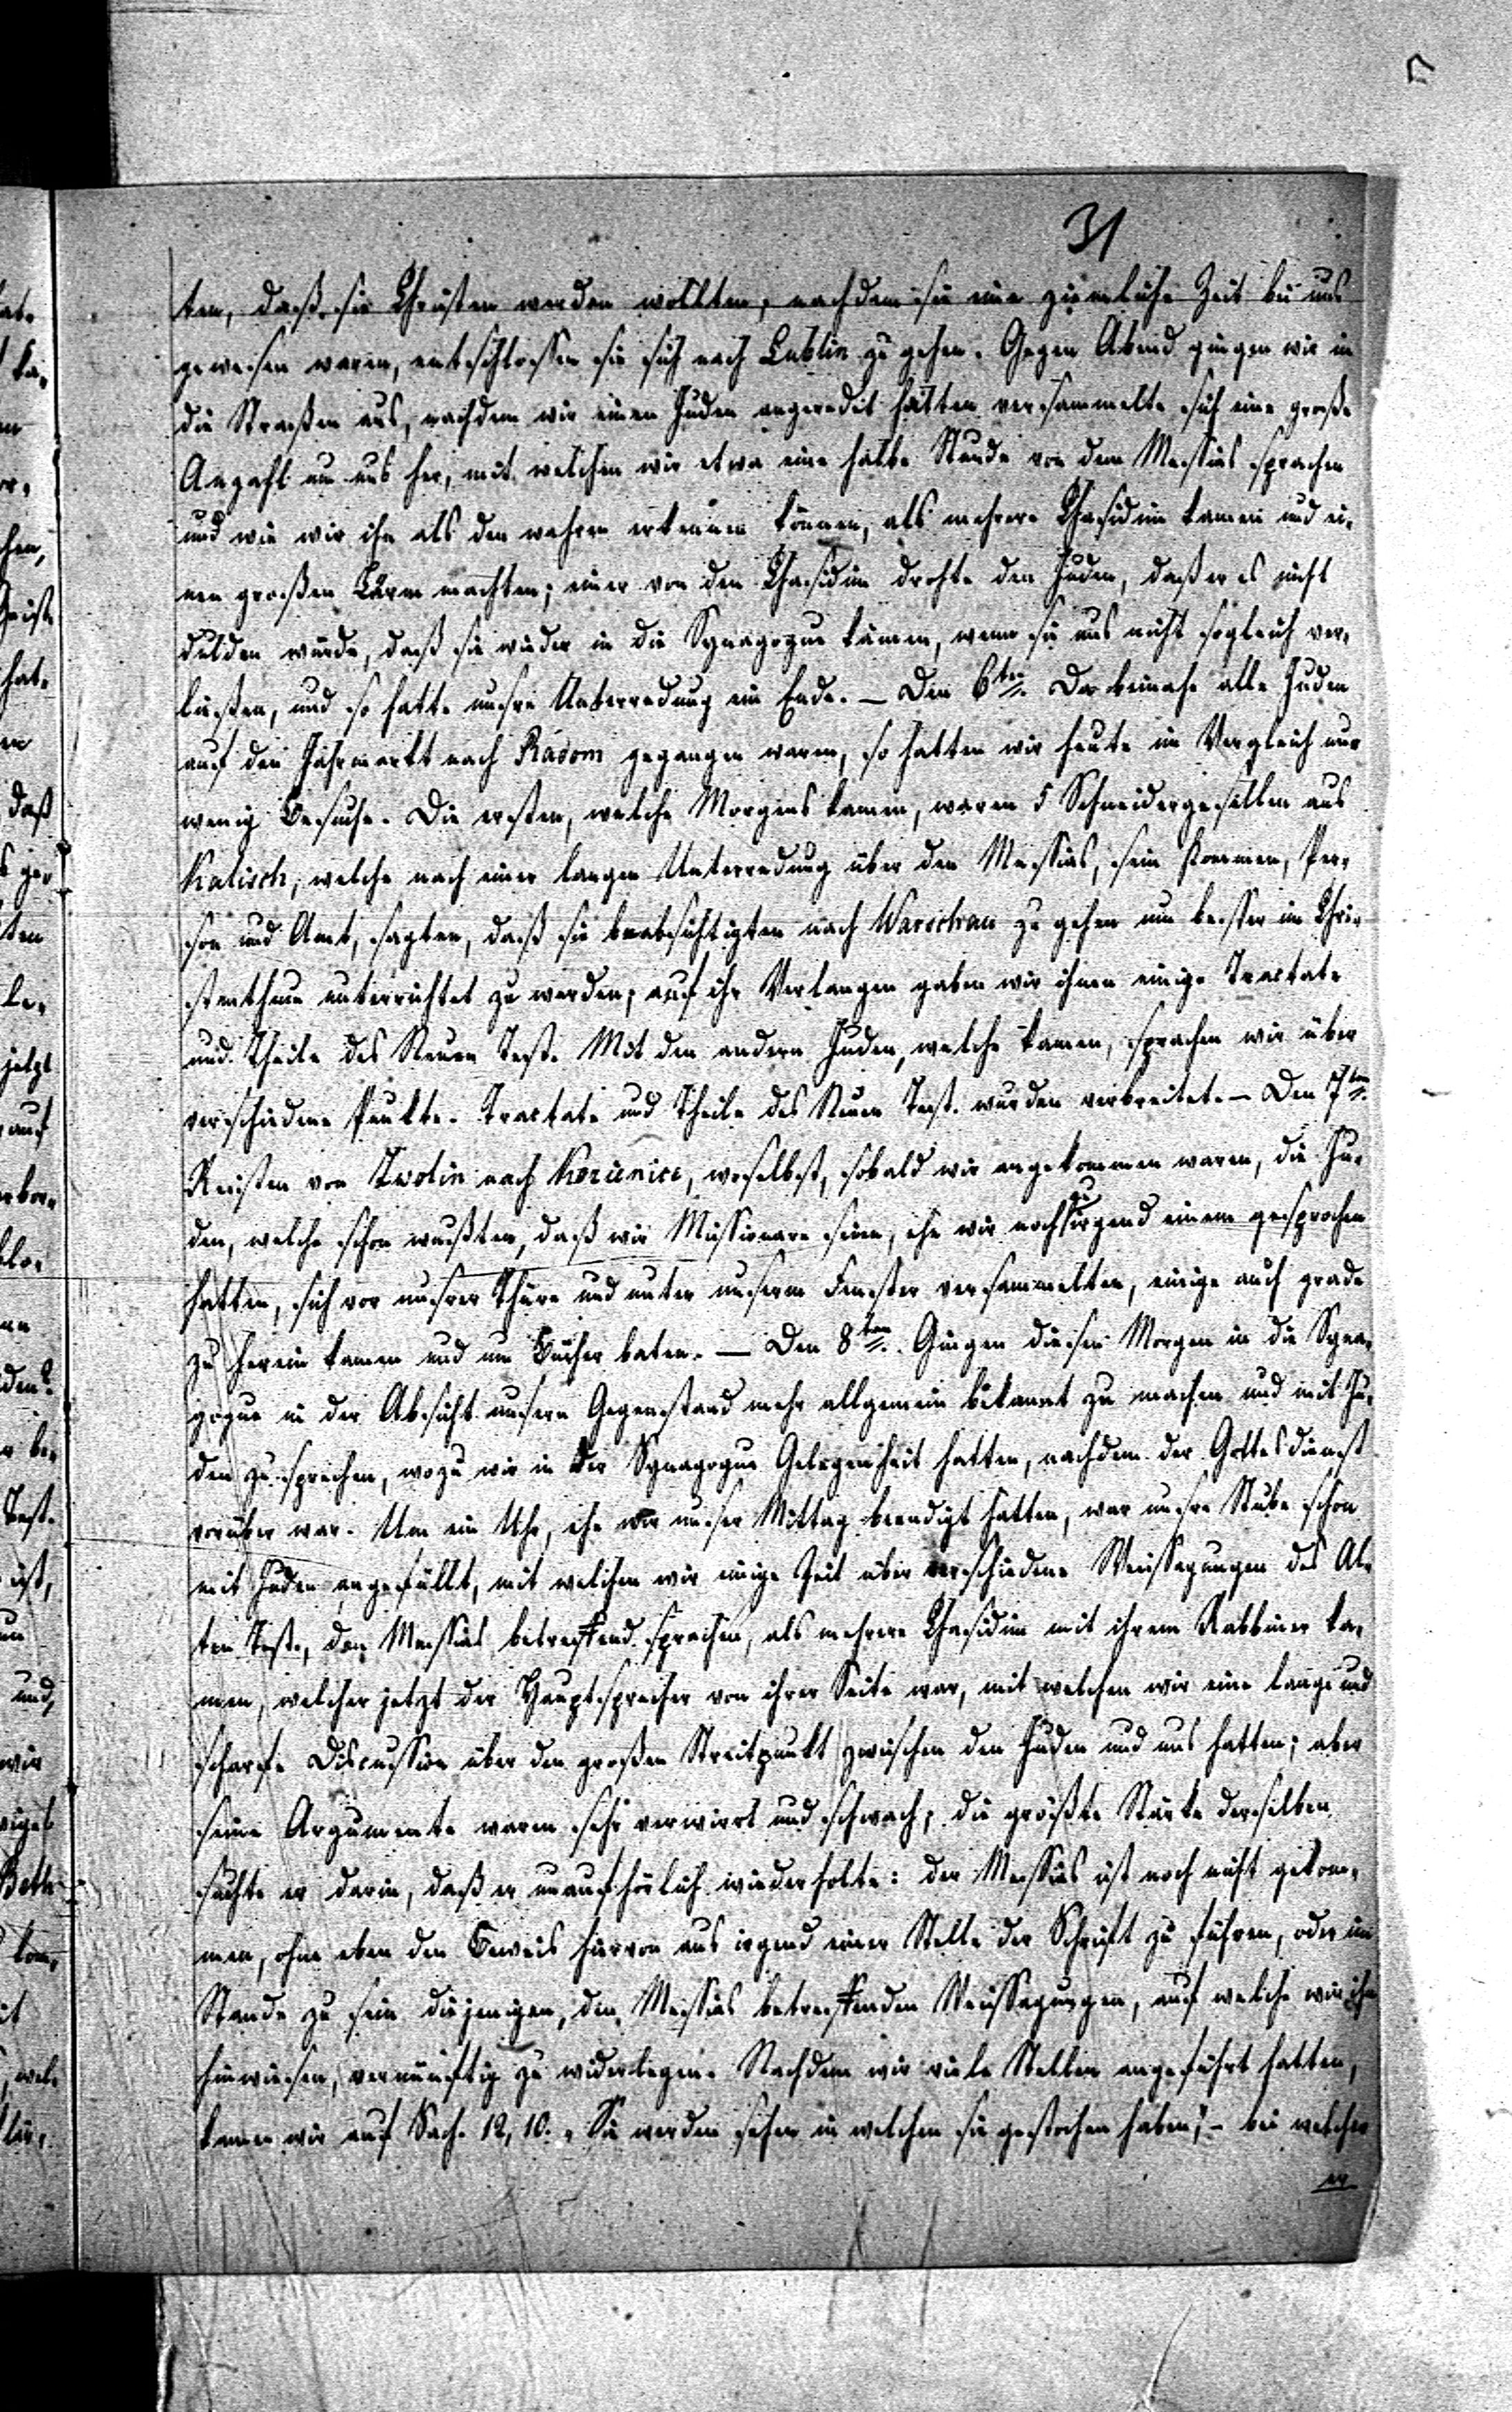 31
ten, daß sie Christen werden wollten, nachdem sie eine ziemliche Zeit bei uns
gewesen waren, entschlossen sie sich nach Lublin zu gehen. Gegen Abend gingen wir in
die Straßen aus, nachdem wir einen Juden angeredet hatten versammelte sich eine große
Anzahl um uns her, mit welchen wir etwa eine halbe Stunde von dem Messias sprachen
und wie wir ihn als den wahren erkennen können, als mehrere Chasidim kamen und ei-
nen großen Lärm machten; einer von den Chasidim drohte den Juden, daß er es nicht
dulden würde, daß sie wieder in die Synagogue kämen, wenn sie uns nicht sogleich ver-
ließen, und so hatte unsre Unterredung ein Ende. — Den 6ten. Da beinahe alle Juden
auf den Jahrmarkt nach Radom gegangen waren, so hatten wir heute im Vergleich nur
wenig Besuche. Die ersten, welche Morgens kamen, waren 5 Schneidergesellen aus
Kalisch, welche nach einer langen Unterredung über den Messias, sein Kommen, Per-
son und Amt, sagten, daß sie beabsichtigten nach Warschau zu gehen um besser im Chri-
stenthum unterrichtet zu werden; auf ihr Verlangen gaben wir ihnen einige Tractate
und Theile des Neuen Test. Mit den andern Juden, welche kamen, sprachen wir über
verschiedene Punkte. Tractate und Theile des Neuen Test. wurden verbreitet. — Den 7ten.
Reisten von Zwolin nach Kozienice, woselbst, sobald wir angekommen waren, die Ju-
den, welche schon wußten, daß wir Missionare seien, ehe wir noch zu irgend einem gesprochen
hatten, sich vor unsrer Thüre und unter unserm Fenster versammelten, einige auch grade
zu herein kamen und um Bücher baten. — Den 8ten. Gingen diesen Morgen in die Syna-
gogue in der Absicht unsern Gegenstand mehr allgemein bekannt zu machen und mit Ju-
den zu sprechen, wozu wir in der Synagogue Gelegenheit hatten, nachdem der Gottesdienst
vorüber war. Um ein Uhr, ehe wir unser Mittag beendigt hatten, war unsre Stube schon
mit Juden angefüllt, mit welchen wir einige Zeit über verschiedene Weissagungen des Al-
ten Test., den Messias betreffend sprachen, als mehrere Chasidim mit ihrem Rabbiner ka-
men, welcher jetzt der Hauptsprecher von ihrer Seite war, mit welchen wir eine lange und
scharfe Discussion über den großen Streitpunkt zwischen den Juden und uns hatten; aber
seine Argumente waren sehr verwirrt und schwach; die größte Stärke derselben
suchte er darin, daß er unaufhörlich wiederholte: der Messias ist noch nicht gekom-
men, ohne eben den Beweis hiervon aus irgend einer Stelle der Schrift zu führen, oder im
Stande zu sein diejenigen, den Messias betreffenden Weissagungen, auf welche wir ihn
hinwiesen, vernünftig zu widerlegen. Nachdem wir viele Stellen angeführt hatten,
kamen wir auf Sach. 12, 10. „Sie werden sehen in welchen sie gestochen haben", – bei welcher